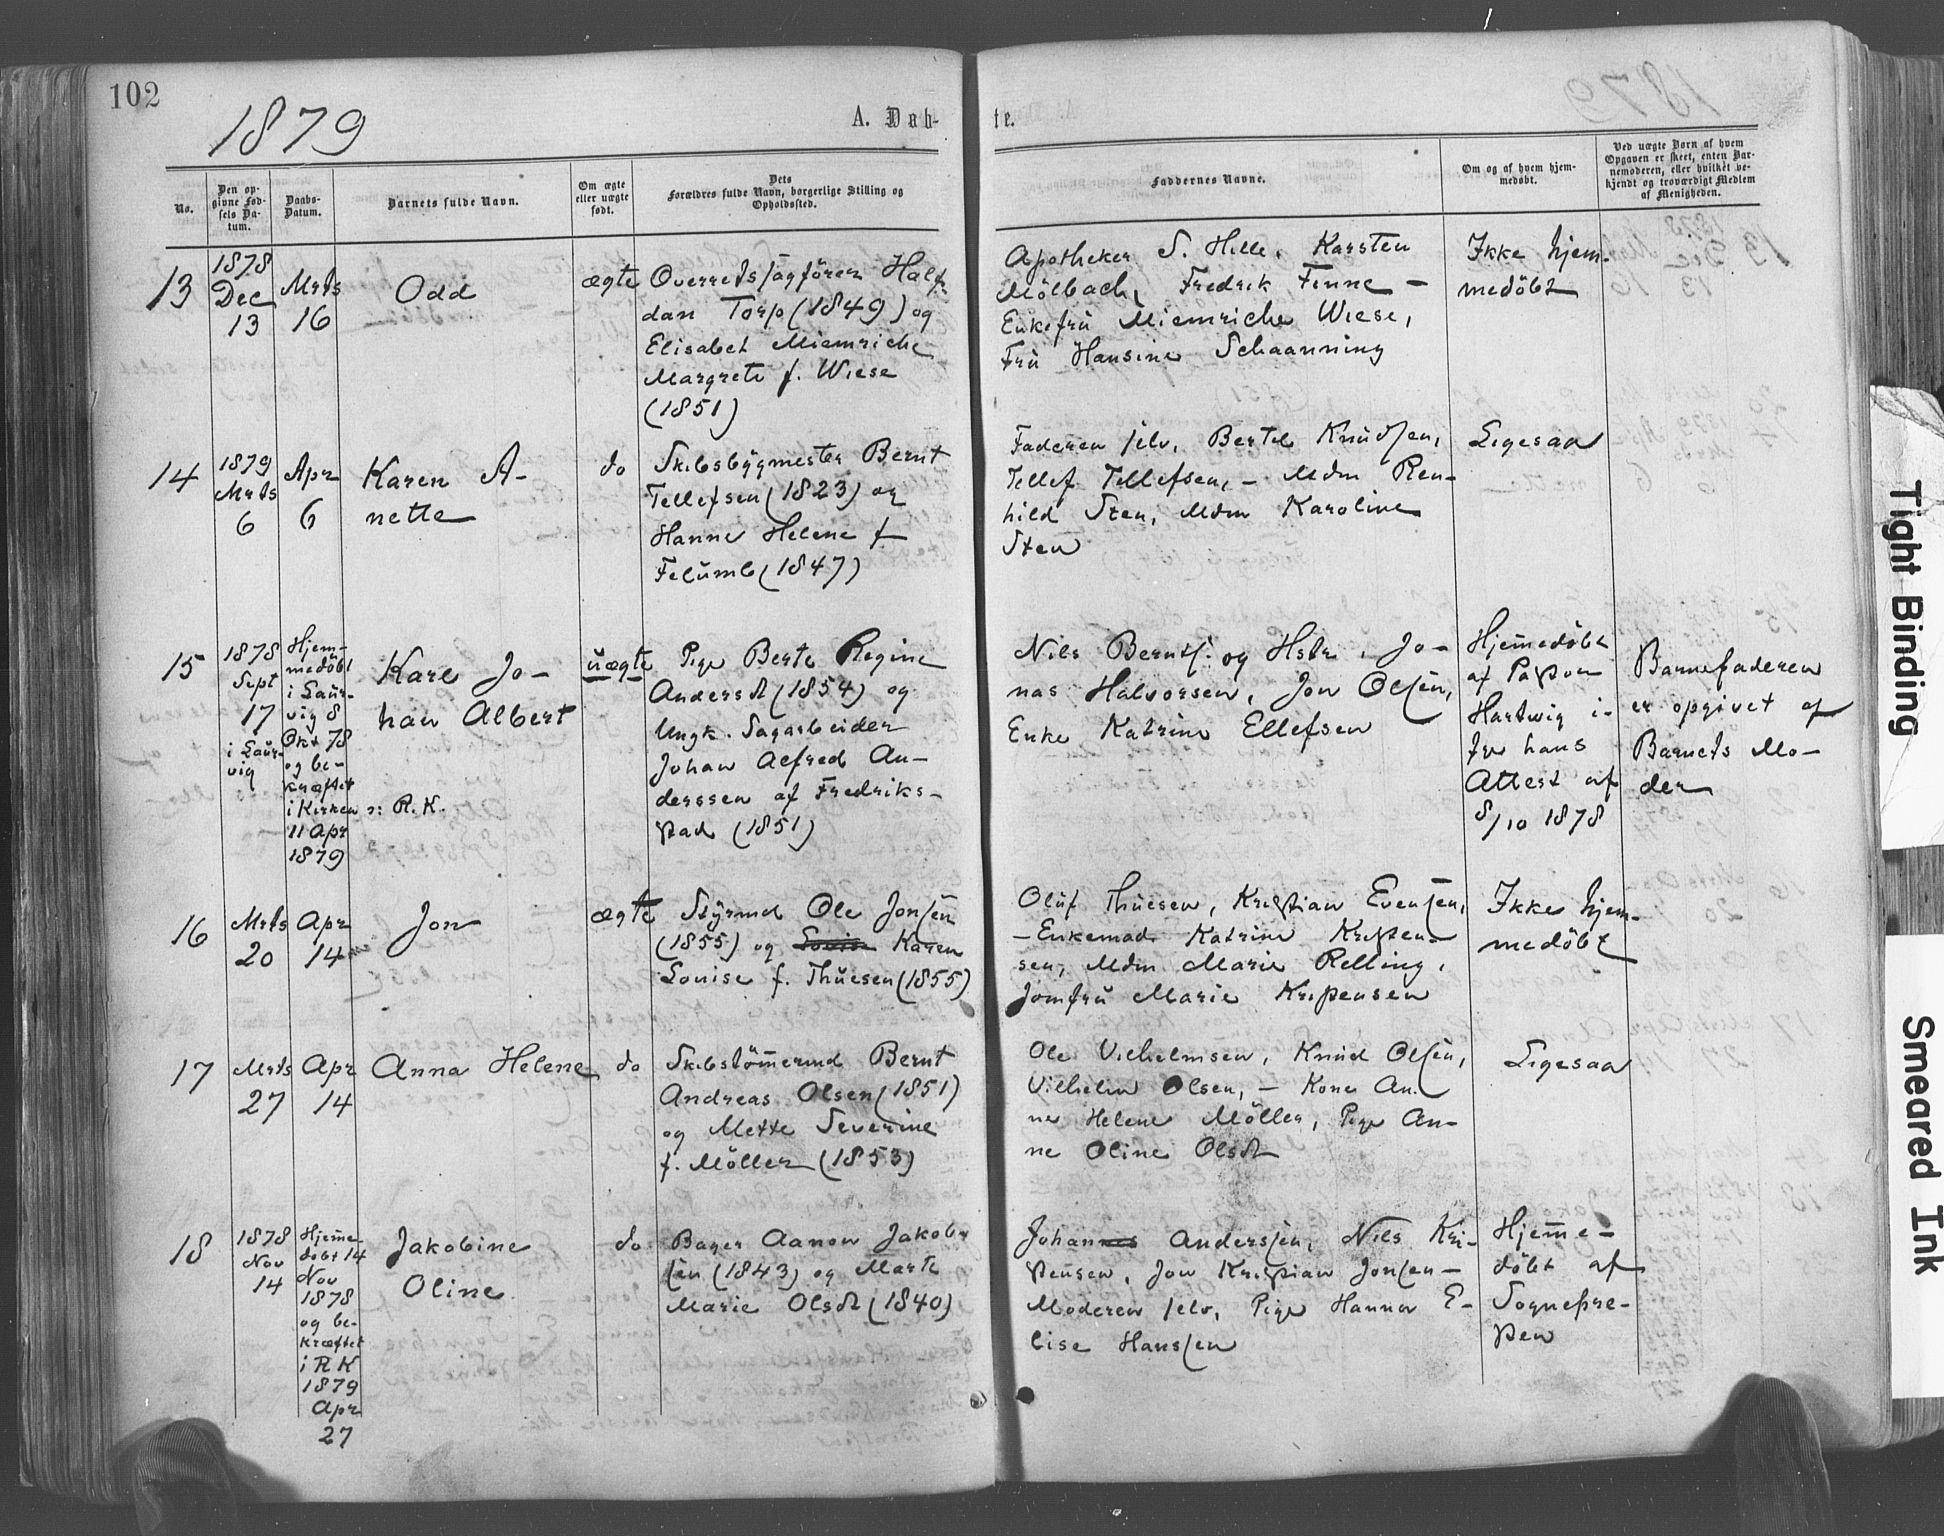 102
1879
A. Døb-
te.
No.
Den op-
givne Fød-
sels Da-
tum.
Daabs-
Datum.
Barnets fulde Navn.
Om ægte
eller uægte
født.
Dets
Forældres fulde Navn, borgerlige Stilling og
Opholdssted.
Faddernes Navne.
Om og af hvem hjem-
medøbt.
Ved uægte Børn af hvem
Opgaven er skeet, enten Bar-
nemoderen, eller hvilket be-
kjendt og troværdigt Medlem
af Menigheden.
13
1878
Dec
13
Mrts
16
Odd
ægte
Overretssagfören Half-
dan Torp (1849) og
Elisabet Miemriche
Margrete f. Wiese
(1851)
Apotheker S. Hille, Karsten
Mölbach, Fredrik Finne -
Enkefru Miemriche Wiese,
Fru Hansine Schaanning
Ikke hjem-
medöbt
14
1879
Mrts
6
Apr
6
Karen A-
nette
do
Skibsbygmester Bernt
Tellefsen (1823) og
Hanne Helene f
Felumb (1847)
Faderen selv, Bertel Knudsen,
Tellef Tellefsen, - Mdm Ren-
hild Sten, Mdm Karoline
Sten
Ligesaa
15
1878
Sept
17
i Laur-
vig
Hjem-
medöbt
i Laur-
vig 8
Okt 78
og be-
kræftet
i Kirken ɔ: R.K.
11 Apr
1879
Karl Jo-
han Albert
uægte
Pige Berte Regine
Andersdt (1854) og
Ungk. Sagarbeider
Johan Alfred An-
derssen af Fredriks-
stad (1851)
Nils Bernts. og Hstr, Jo-
nas Halvorsen, Jon Olsen,
Enke Katrine Ellefsen
Hjemmedöbt
af Pastor
Hartwig i-
fer hans
Attest af
8/10 1878
Barnefaderen
er opgivet af
Barnets Mo-
der
16
Mrts
20
Apr
14
Jon
ægte
Styrmd Ole Jonsen
(1855) og Louise Karen
Louise f. Thuesen (1855)
Oluf Thuesen, Kristian Evensen,
- Enkemad. Katrine Kristen-
sen, Mdm Marie Relling,
Jomfru Marie Kristensen
Ikke hjem-
medöbt
17
Mrts
27
Apr
14
Anna Helene
do
Skibstömmermd Bernt
Andreas Olsen (1851)
og Mette Severine
f. Möller (1853)
Ole Vilhelmsen, Knud Olsen,
Vilhelm Olsen, - Kone An-
ne Helene Möller, Pige An-
ne Oline Olsdt
Ligesaa
18
1878
Nov
14
Hjemme-
döbt 14
Nov
1878
og be-
kræftet
i R K
1879
Apr
27
Jakobine
Oline
do
Bager Aanon Jakob-
sen (1843) og Marte
Marie Olsdt (1840)
Johannes Anderssen, Nils Kri-
stensen, Jon Kristian Jonsen -
Moderen selv, Pige Hanna E-
lise Hanssen
Hjemme-
döbt af
Sognepre-
sten
Tight Binding
Smeared Ink